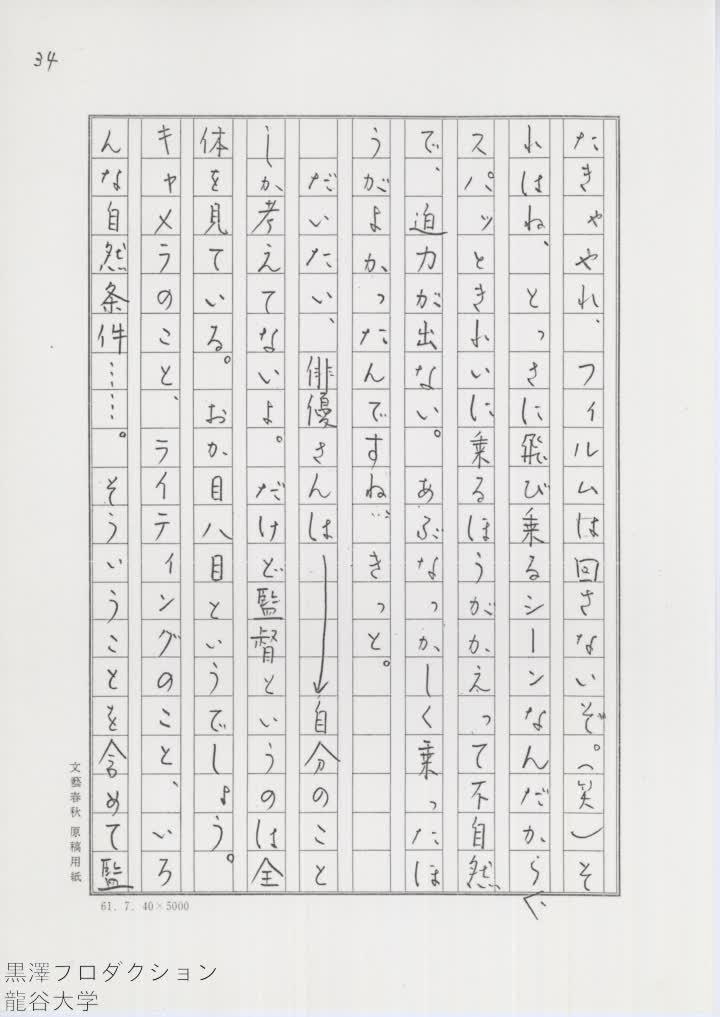 34
たきゃやれ、フィルムは回さないぞ。(笑)そ
れはね、とっさに飛び乗るシーンなんだから
スパッときれいに乗るほうがかえって不自然
で、迫力が出ない。あぶなっかしく乗ったほ
うがよかったんですね…きっと。
だいたい、俳優さんは自分のこと
しか考えてないよ。だけど監督というのは全
体を見ている。おか目八目というでしょう。
キャメラのこと、ライティングのこと、いろ
んな自然条件……。そういうことを含めて監
文藝春秋 原稿用紙
61. 7. 40×5000
黒澤プロダクション
龍谷大学